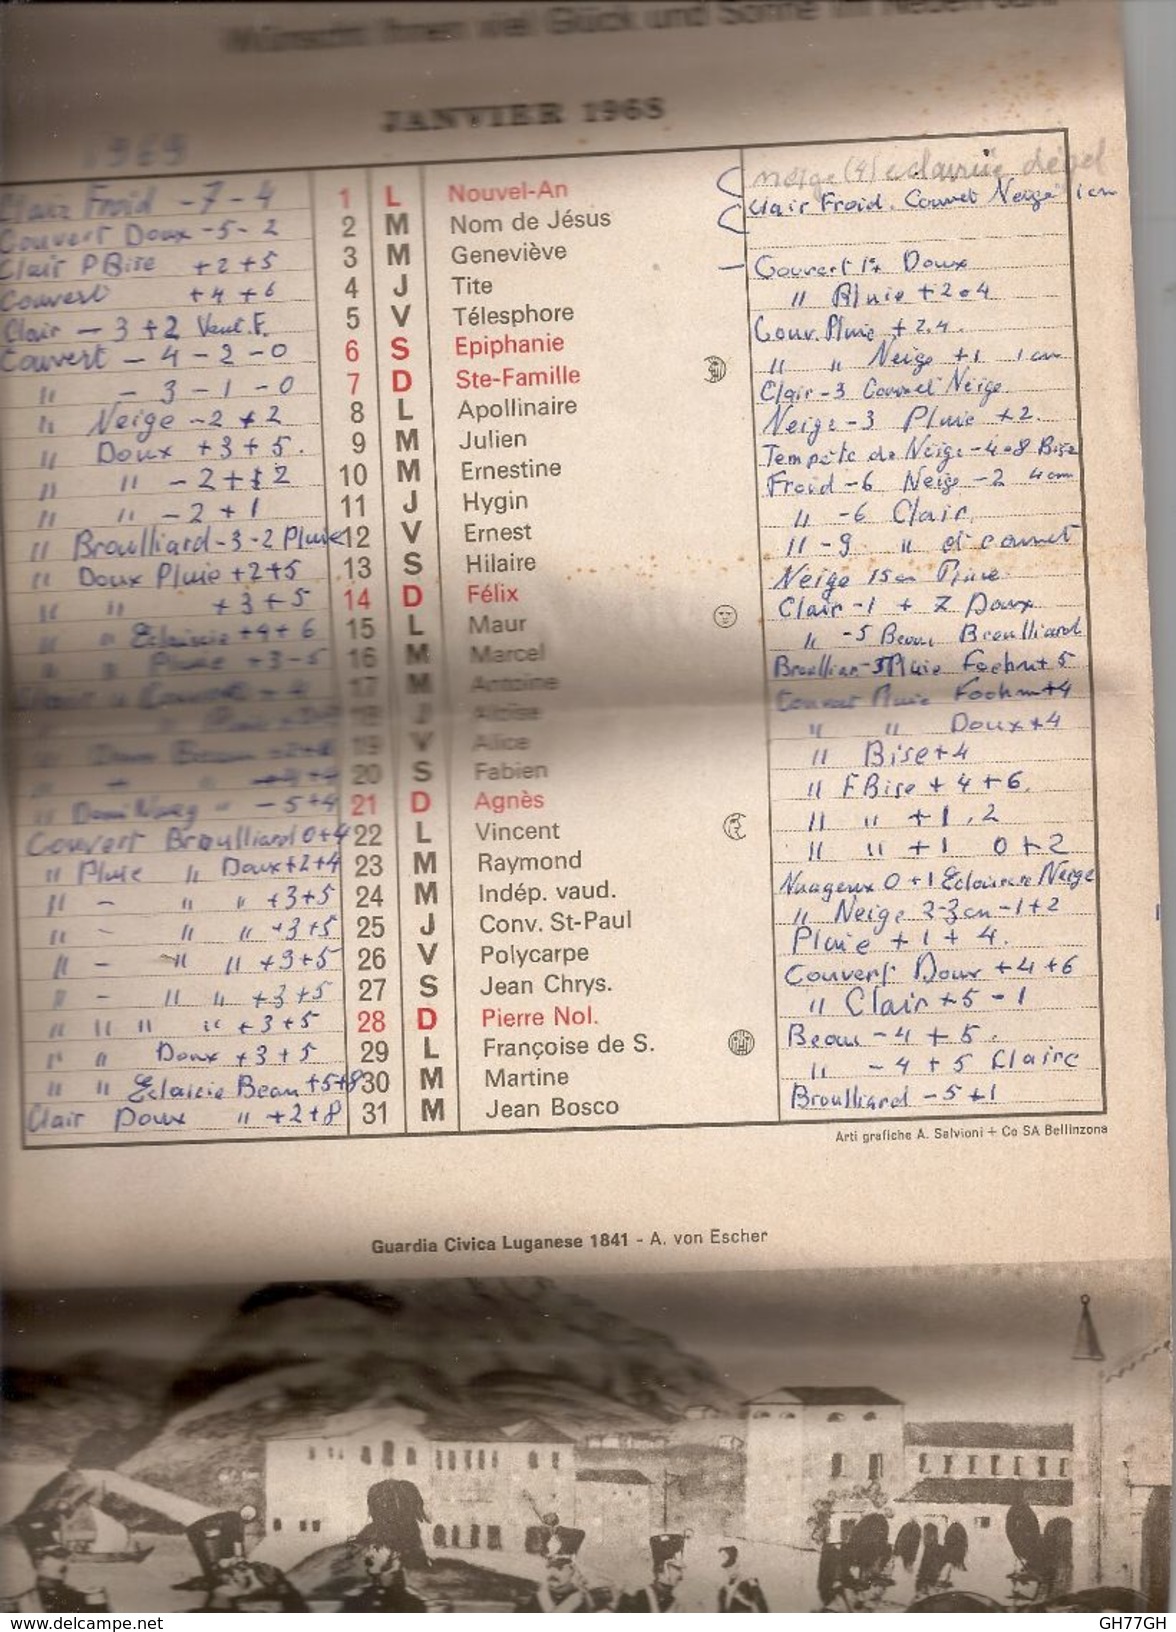 Wünscht Ihnen viel Glück und Sonne im Neuen Jahr
JANVIER 1968
1969
neige (4) éclaircie dégel
Clair Froid -7-4 1 L Nouvel-An Clair Froid. Couvert Neige 1 cm
Couvert Doux -5-2 2 M Nom de Jésus
Clair P Bise +2+5 3 M Geneviève Couvert Doux
Couvert +4+6 4 J Tite " Pluie +2.4
Clair -3+2 Vent.F. 5 V Télesphore Couv. Pluie +2.4.
Couvert -4-2-0 6 S Epiphanie " " Neige +1 1 cm
" -3-1-0 7 D Ste-Famille Clair-3 Couvert Neige.
" Neige -2+2 8 L Apollinaire Neige-3 Pluie +2.
" Doux +3+5. 9 M Julien Tempête de Neige-4.8 Bise
" " -2+2 10 M Ernestine Froid-6 Neige -2 4 cm
" " -2+1 11 J Hygin " -6 Clair
" Broulliard-3-2 Pluie 12 V Ernest " -9 " et couvert
" Doux Pluie +2+5 13 S Hilaire Neige 15 cm Pluie
" " +3+5 14 D Félix Clair-1 + 2 Doux
" " Eclaircie +4+6 15 L Maur " -5 Beau Broulliard
" " Pluie +3-5 16 M Marcel Pluie Foehn+5
17 M Antoine Couvert Pluie Foehn+4
18 J Aloïse " " Doux+4
19 V Alice " Bise+4
20 S Fabien " F Bise +4+6.
" -5+4 21 D Agnès " " +1,2
Couvert Broulliard 0+4 22 L Vincent " " +1 0+2
" Pluie " Doux+2+4 23 M Raymond Nuageux 0+1 Eclaircie Neige
" - " " +3+5 24 M Indép. vaud. " Neige 2-3 cm -1+2
" - " " +3+5 25 J Conv. St-Paul Pluie +1+4.
" - " " +3+5 26 V Polycarpe Couvert Doux +4+6
" - " " +3+5 27 S Jean Chrys. " Clair +5-1
" " " " +3+5 28 D Pierre Nol. Beau -4+5.
" " Doux +3+5 29 L Françoise de S. " -4+5 Claire
" " Eclaicie Beau +5+8 30 M Martine Broulliard -5+1
Clair Doux " +2+8 31 M Jean Bosco
Arti grafiche A. Salvioni + Co SA Bellinzona
Guardia Civica Luganese 1841 - A. von Escher
www.delcampe.net
GH77GH